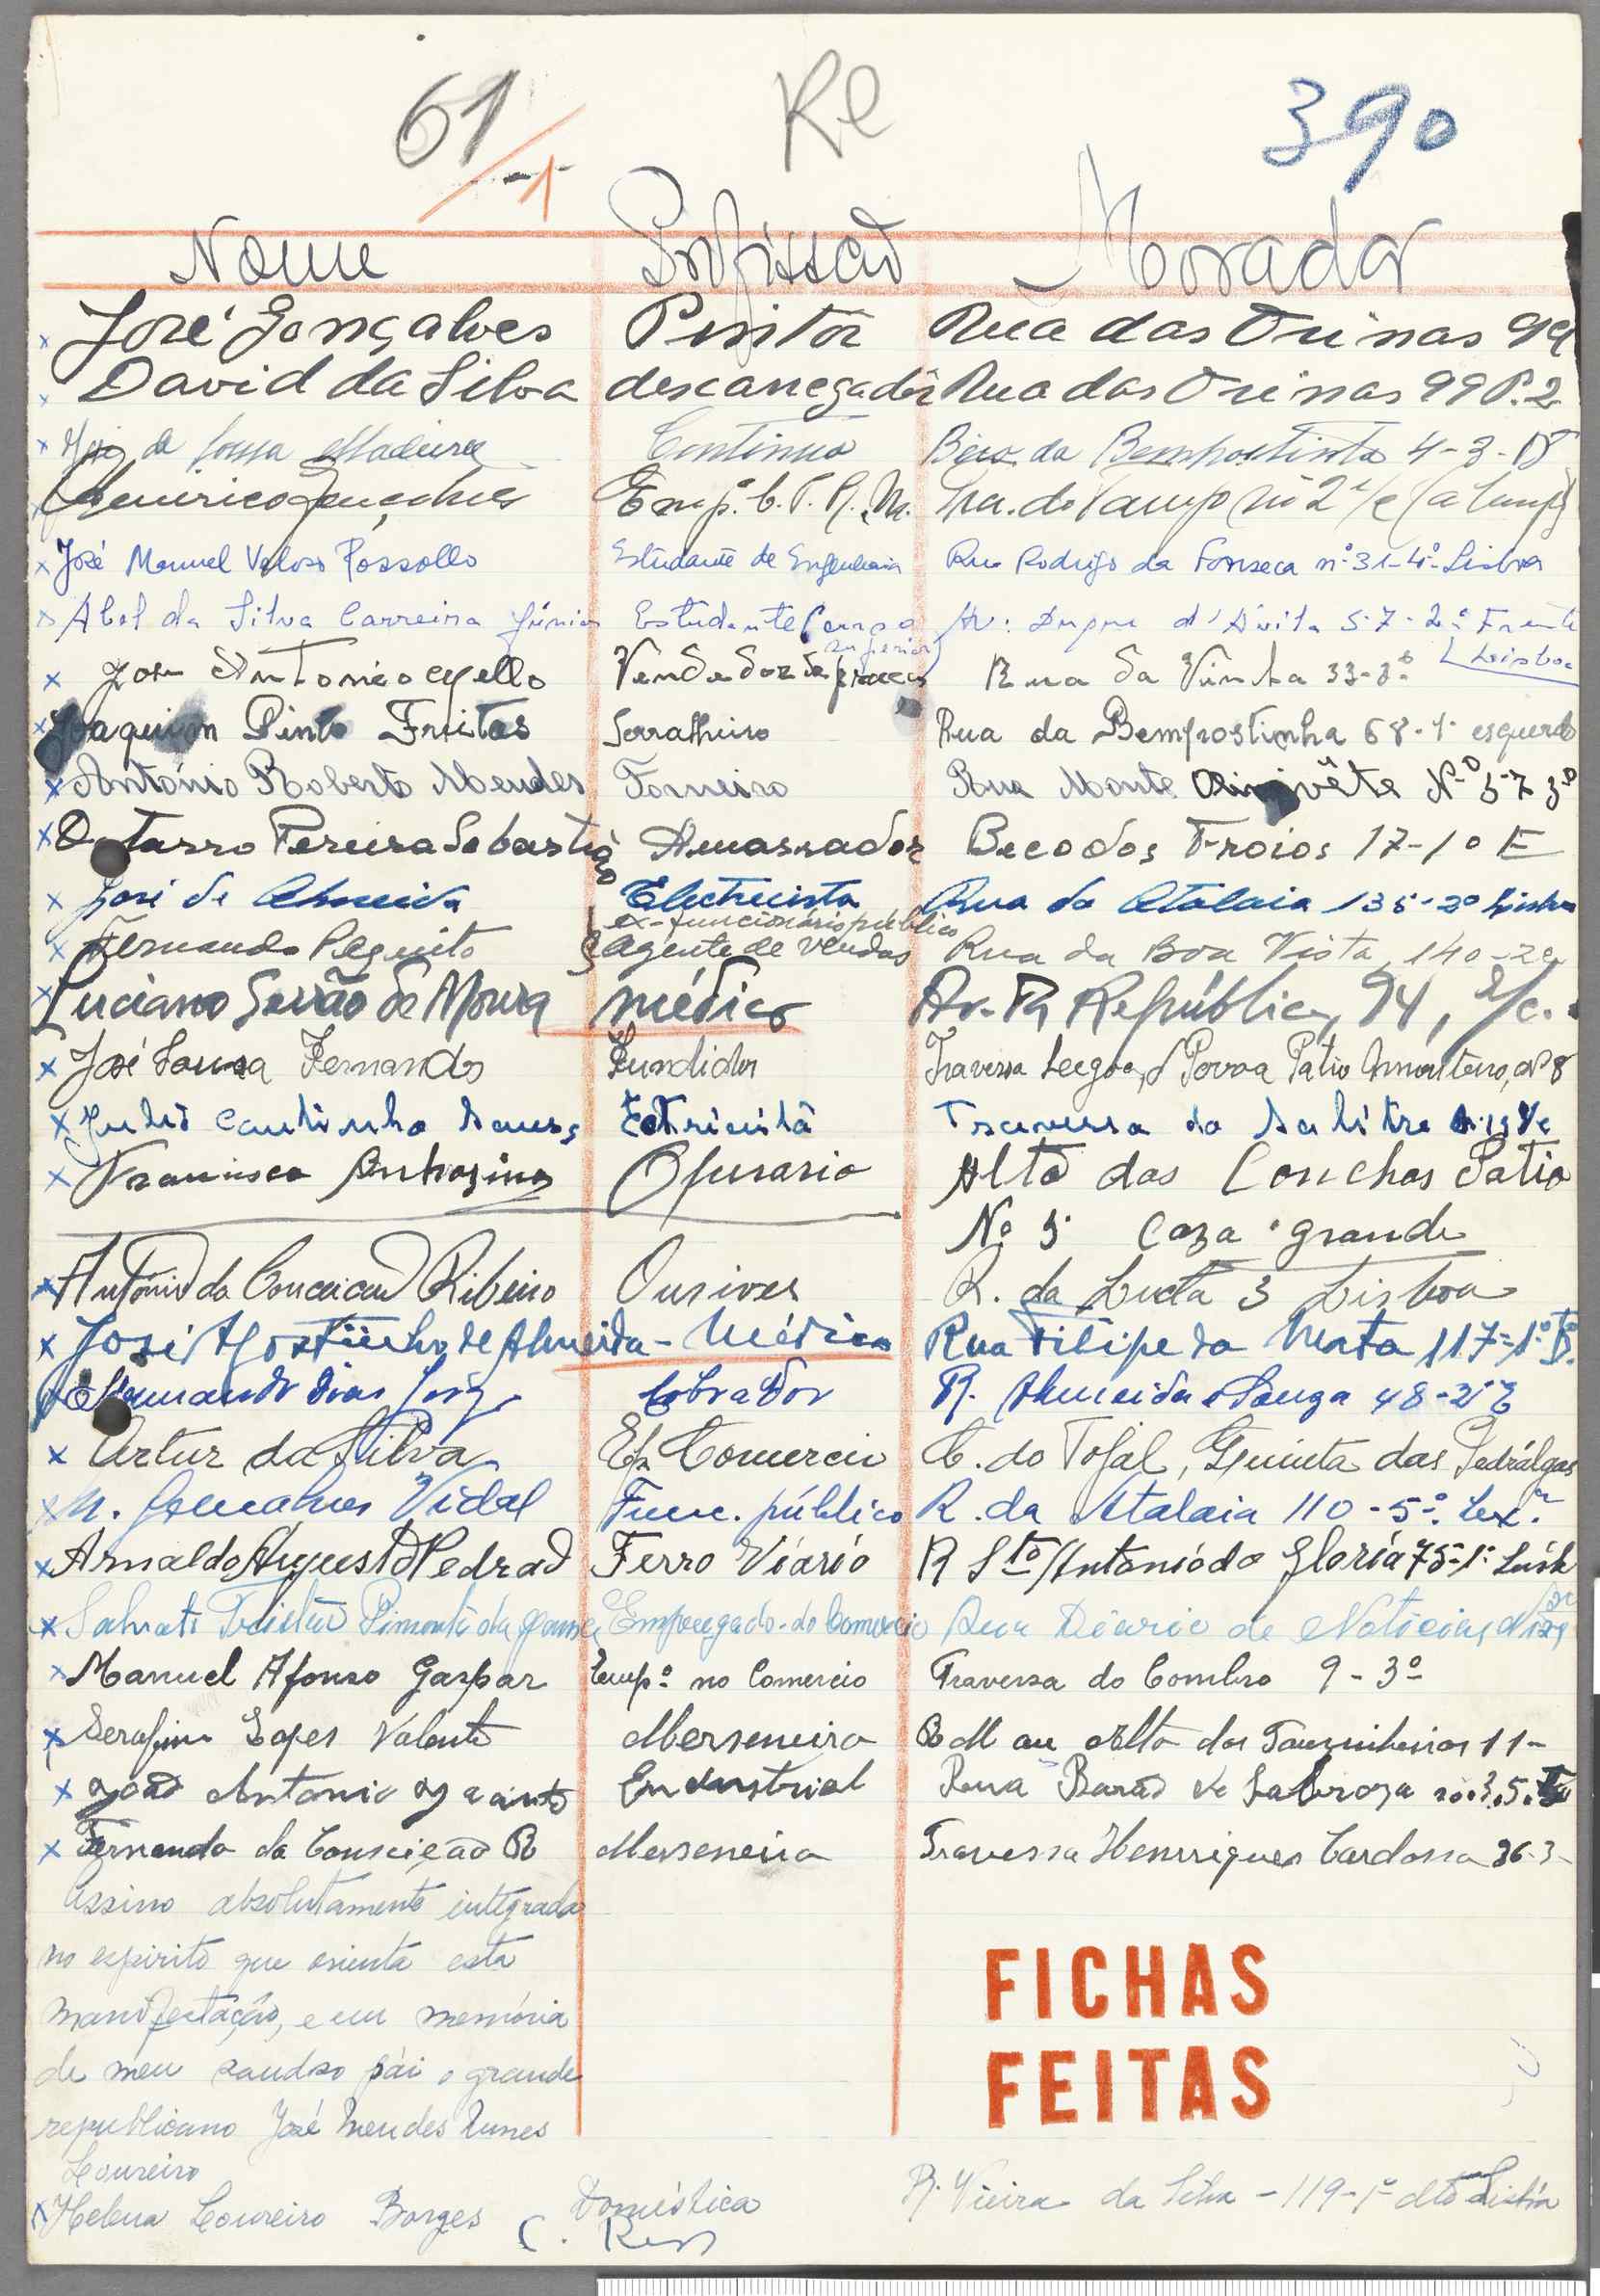 61 Re 390
1
Nome Profissão Morada
José Gonçalves Pintôr Rua das Trinas 99
David da Silva descarregadôr Rua das Trinas 99 P.2
de Sousa Madeira Continuo Beco da Bempostinha 4-3-D
Americo Gonçalves Emp.º C.P.R.M. Tra. do
José Manuel Veloso Rossollo Estudante de Engenharia Rua Rodrigo da Fonseca nº 31-4º- Lisboa
Abel da Silva Carreira Júnior Estudante Curso Av: Duque d'Ávila 57-2º Frente
superior Lisboa
José Antonio Mello Vendedor de praça Rua da Vinha 33-3º
Joaquim Pinto Freitas Serralheiro Rua da Bempostinha 68-1º esquerdo
António Roberto Mendes Torneiro Rua Monte Olivête Nº 57 3º
Pereira Sebastião Amassador Beco dos Froios 17-1º E
José de Almeida Electricista Rua da Atalaia 135-2º Lisboa
ex-funcionário público
Fernando Pequito agente de vendas Rua da Boa Vista, 140-2º
Luciano Serrão de Moura médico Av. da República, 94, r/c.
José Sousa Fernandes Fundidor Travessa Légua da Povoa Patio Monteiro, nº 8
Julio Coutinho Travessa do Salitre
Francisco Operario Alto das Conchas Patio
Nº 5 Caza grande
António da Conceicão Ribeiro Ourives R. da Lucta 3 Lisboa
José Agostinho de Almeida - Médico Rua Filipe da Mata 117-1º D.
Fernando Dias Jorge Cobrador R. Almeida e Sousa 48-2º E
Artur da Silva Ep. Comercio C. do Tojal, Quinta das Pedrálgas
M. Goncalves Vidal Func. público R. da Atalaia 110-5º Lx.ª
Arnaldo Augusto Pedrad Ferro Viário R Stº Antonio da Gloria 75-1º Lisb
Tristão Pimenta da Empregado do Comercio Rua Diario de Noticias
Manuel Afonso Gaspar Empº no Comercio Travessa do Combro 9-3º
Serafim Lopes Valente Merseneiro ao Alto dos Toucinheiros 11-
João Antonio Jacinto Endustrial Rua Barão de Sabroza
Fernando da Conseição R Merseneiro Travessa Henrriques Cardosa 36-3-
Assino absolutamente integrada
no espirito que orienta esta
manifestação, e em memória
de meu saudso pái o grande
republicano José Mendes Nunes
Loureiro
Helena Loureiro Borges Doméstica R. Vieira da Silva - 119-1º dto Lisbôa
C.
FICHAS
FEITAS